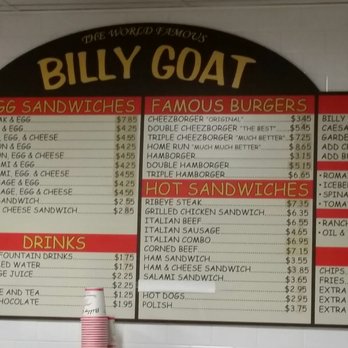 THE WORLD FAMOUS
BILLY GOAT
GG SANDWICHES
AK & EGG $7.85
& EGG $4.25
N, EGG, & CHEESE $4.55
& EGG $4.25
ON, EGG, & CHEESE $4.55
MI & EGG $4.25
MI, EGG, & CHEESE $4.55
SAGE & EGG $4.25
AGE, EGG, & CHEESE $4.55
SANDWICH $2.55
& CHEESE SANDWICH $2.85
DRINKS
FOUNTAIN DRINKS $1.75
ED WATER $1.75
GE JUICE $2.25
$2.25
E AND TEA $1.25
CHOCOLATE $1.95
FAMOUS BURGERS
CHEEZBORGER "ORIGINAL" $3.45
DOUBLE CHEEZBORGER "THE BEST" $5.45
TRIPLE CHEEZBORGER "MUCH BETTER" $7.25
HOME RUN "MUCH MUCH BETTER" $8.65
HAMBORGER $3.15
DOUBLE HAMBORGER $5.15
TRIPLE HAMBORGER $6.65
HOT SANDWICHES
RIBEYE STEAK $7.35
GRILLED CHICKEN SANDWICH $6.35
ITALIAN BEEF $6.55
ITALIAN SAUSAGE $4.65
ITALIAN COMBO $6.95
CORNED BEEF $7.15
HAM SANDWICH $3.55
HAM & CHEESE SANDWICH $3.85
SALAMI SANDWICH $3.65
$2.95
HOT DOGS $2.95
POLISH $3.75
BILLY
CAESA
GARDE
ADD CH
ADD B
• ROMA
• ICEBE
• SPINA
• TOMA
• RANCH
• OIL &
CHIPS
FRIES
EXTRA
EXTRA
EXTRA